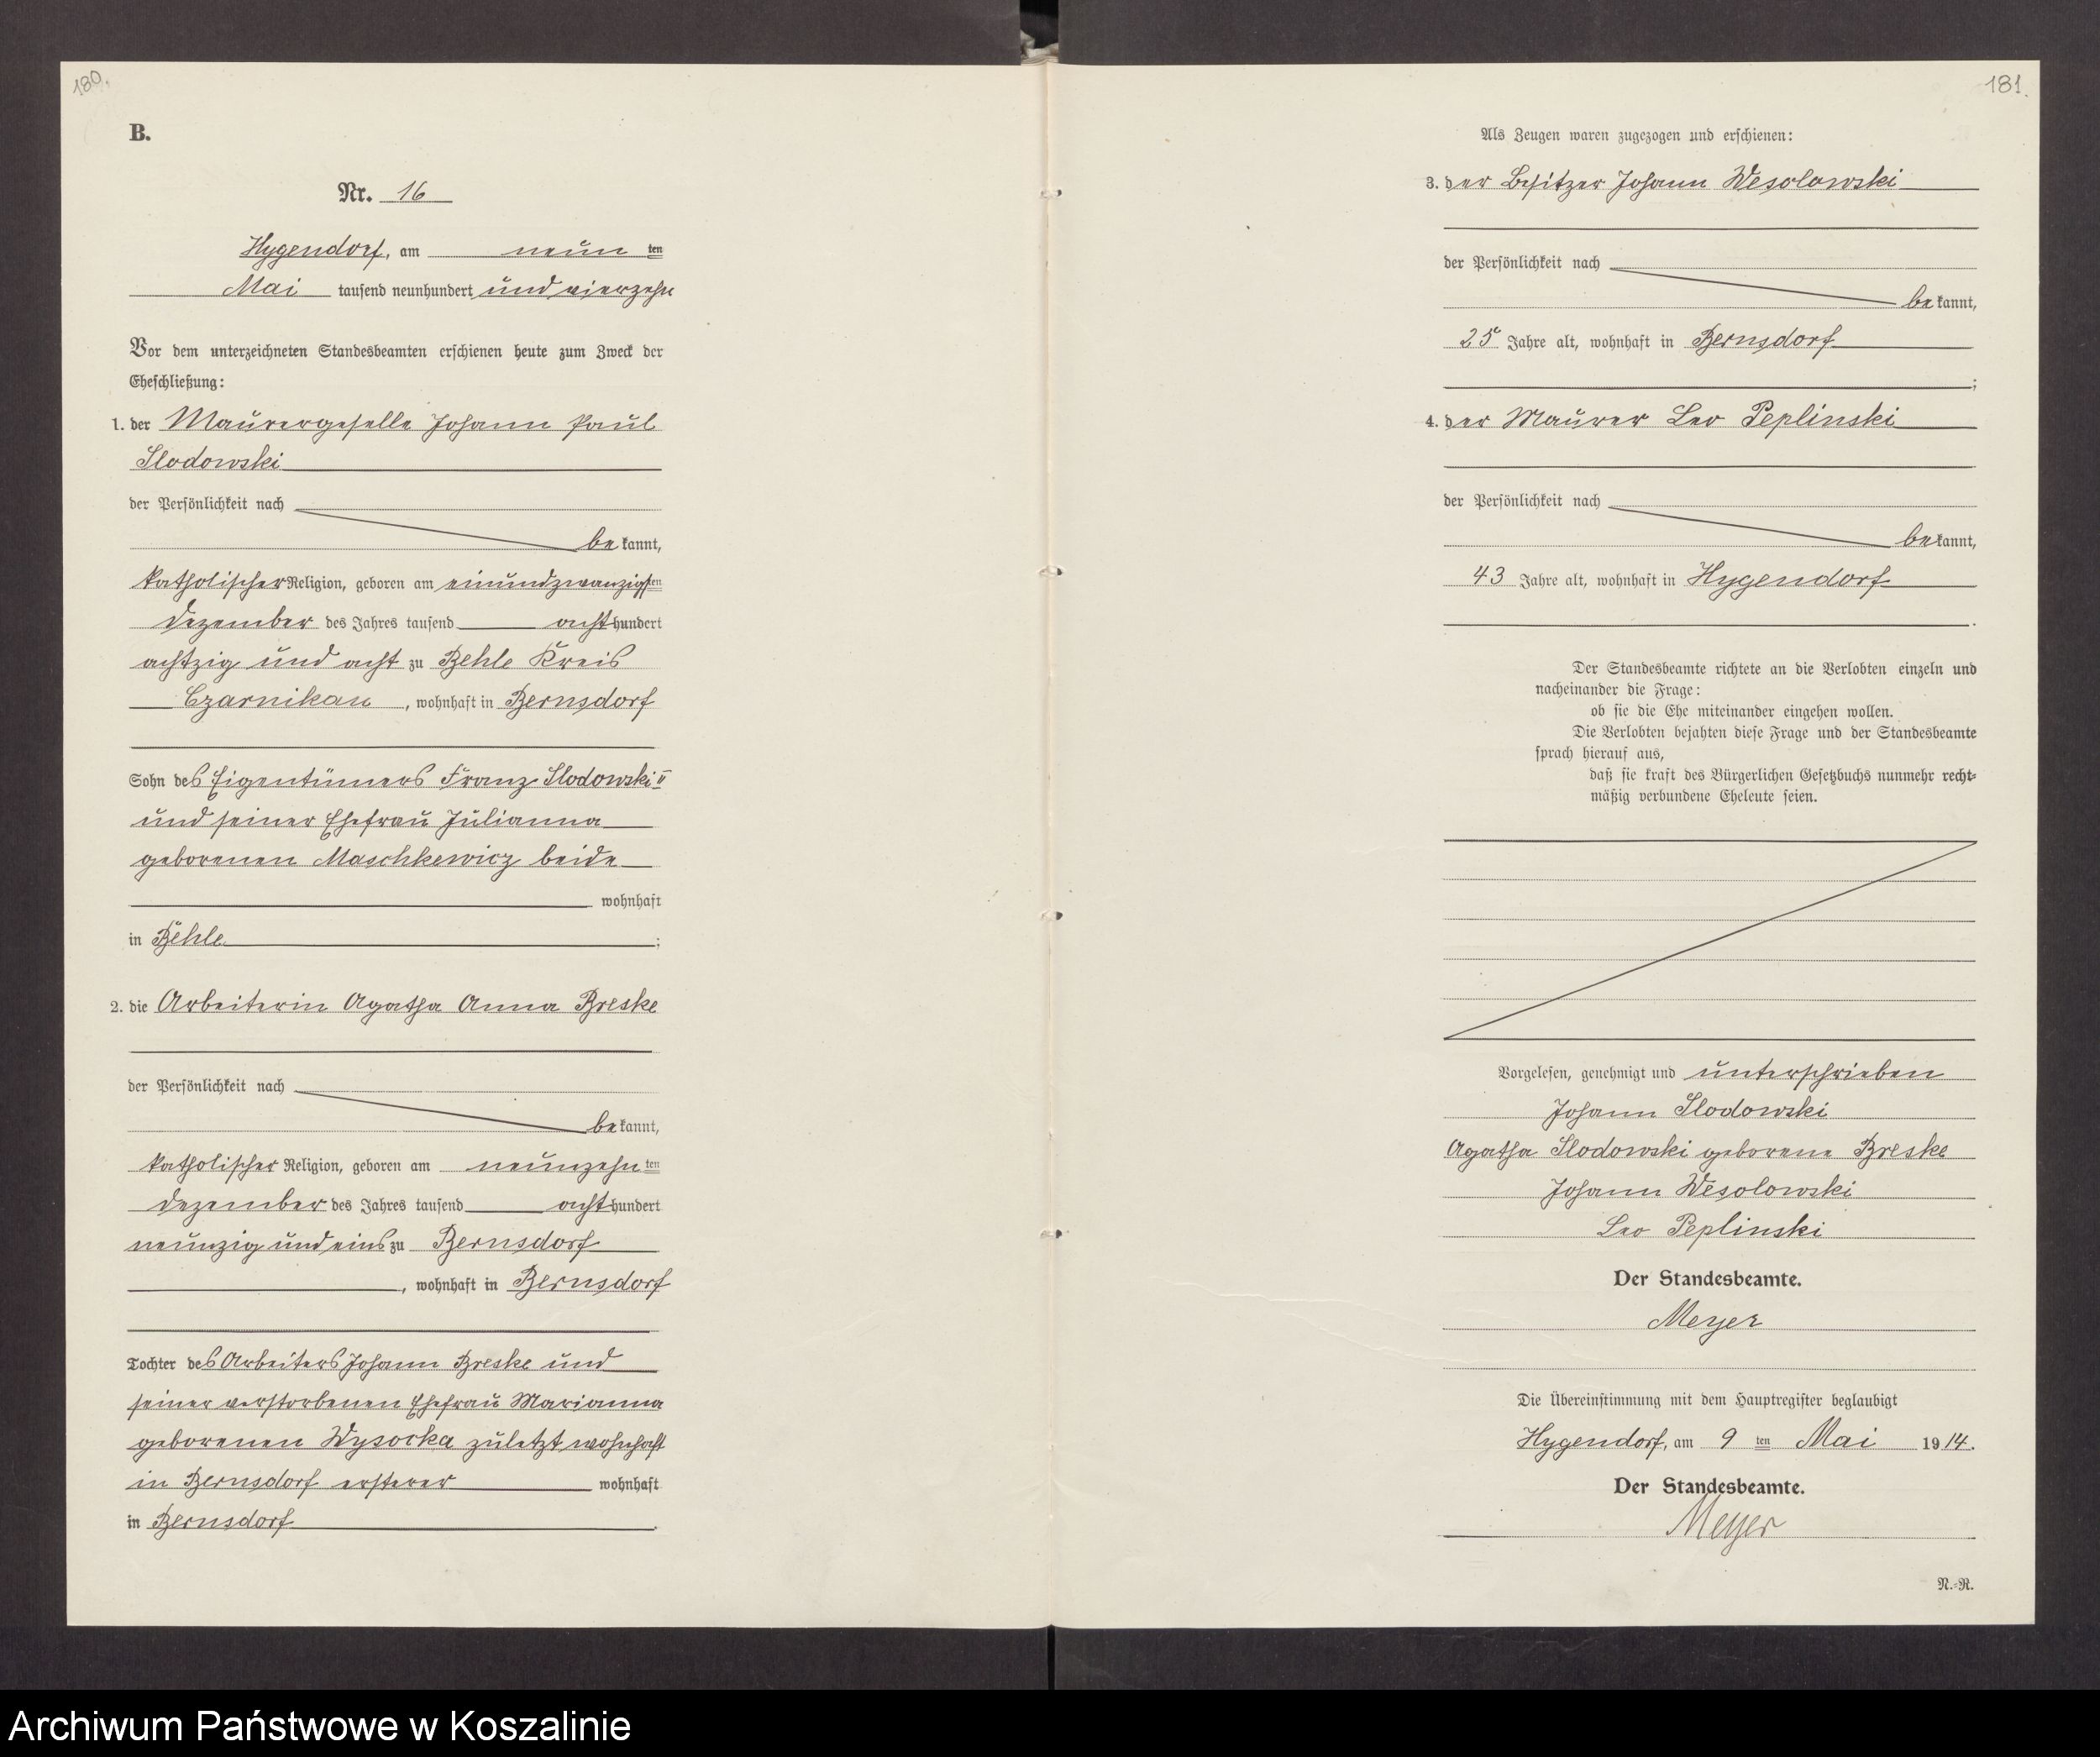 180.
B.
Nr. 16
Hygendorf, am neun ten
Mai tausend neunhundert und vierzehn
Vor dem unterzeichneten Standesbeamten erschienen heute zum Zweck der
Eheschließung:
1. der Maurergeselle Johann Paul
Slodowski
der Persönlichkeit nach
be kannt,
katholischer Religion, geboren am einundzwanzigsten
Dezember des Jahres tausend acht hundert
achtzig und acht zu Behle Kreis
Czarnikau, wohnhaft in Bernsdorf
Sohn des Eigentümers Franz Slodowski II
und seiner Ehefrau Julianna
geborenen Maschkewicz beide
wohnhaft
in Behle;
2. die Arbeiterin Agatha Anna Breske
der Persönlichkeit nach
be kannt,
katholischer Religion, geboren am neunzehn ten
Dezember des Jahres tausend acht hundert
neunzig und eins zu Bernsdorf
, wohnhaft in Bernsdorf
Tochter des Arbeiters Johann Breske und
seiner verstorbenen Ehefrau Marianna
geborenen Wysocka zuletzt wohnhaft
in Bernsdorf ersterer wohnhaft
in Bernsdorf.
181.
Als Zeugen waren zugezogen und erschienen:
3. der Besitzer Johann Wesolowski
der Persönlichkeit nach
be kannt,
25 Jahre alt, wohnhaft in Bernsdorf
;
4. der Maurer Leo Peplinski
der Persönlichkeit nach
be kannt,
43 Jahre alt, wohnhaft in Hygendorf
.
Der Standesbeamte richtete an die Verlobten einzeln und
nacheinander die Frage:
ob sie die Ehe miteinander eingehen wollen.
Die Verlobten bejahten diese Frage und der Standesbeamte
sprach hierauf aus,
daß sie kraft des Bürgerlichen Gesetzbuchs nunmehr recht-
mäßig verbundene Eheleute seien.
Vorgelesen, genehmigt und unterschrieben
Johann Slodowski
Agatha Slodowski geborene Breske
Johann Wesolowski
Leo Peplinski
Der Standesbeamte.
Meyer
Die Übereinstimmung mit dem Hauptregister beglaubigt
Hygendorf, am 9 ten Mai 1914.
Der Standesbeamte.
Meyer
N.-R.
Archiwum Państwowe w Koszalinie